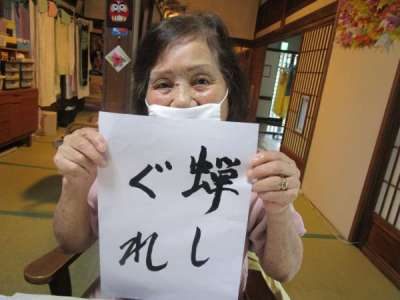 蝉し
ぐれ